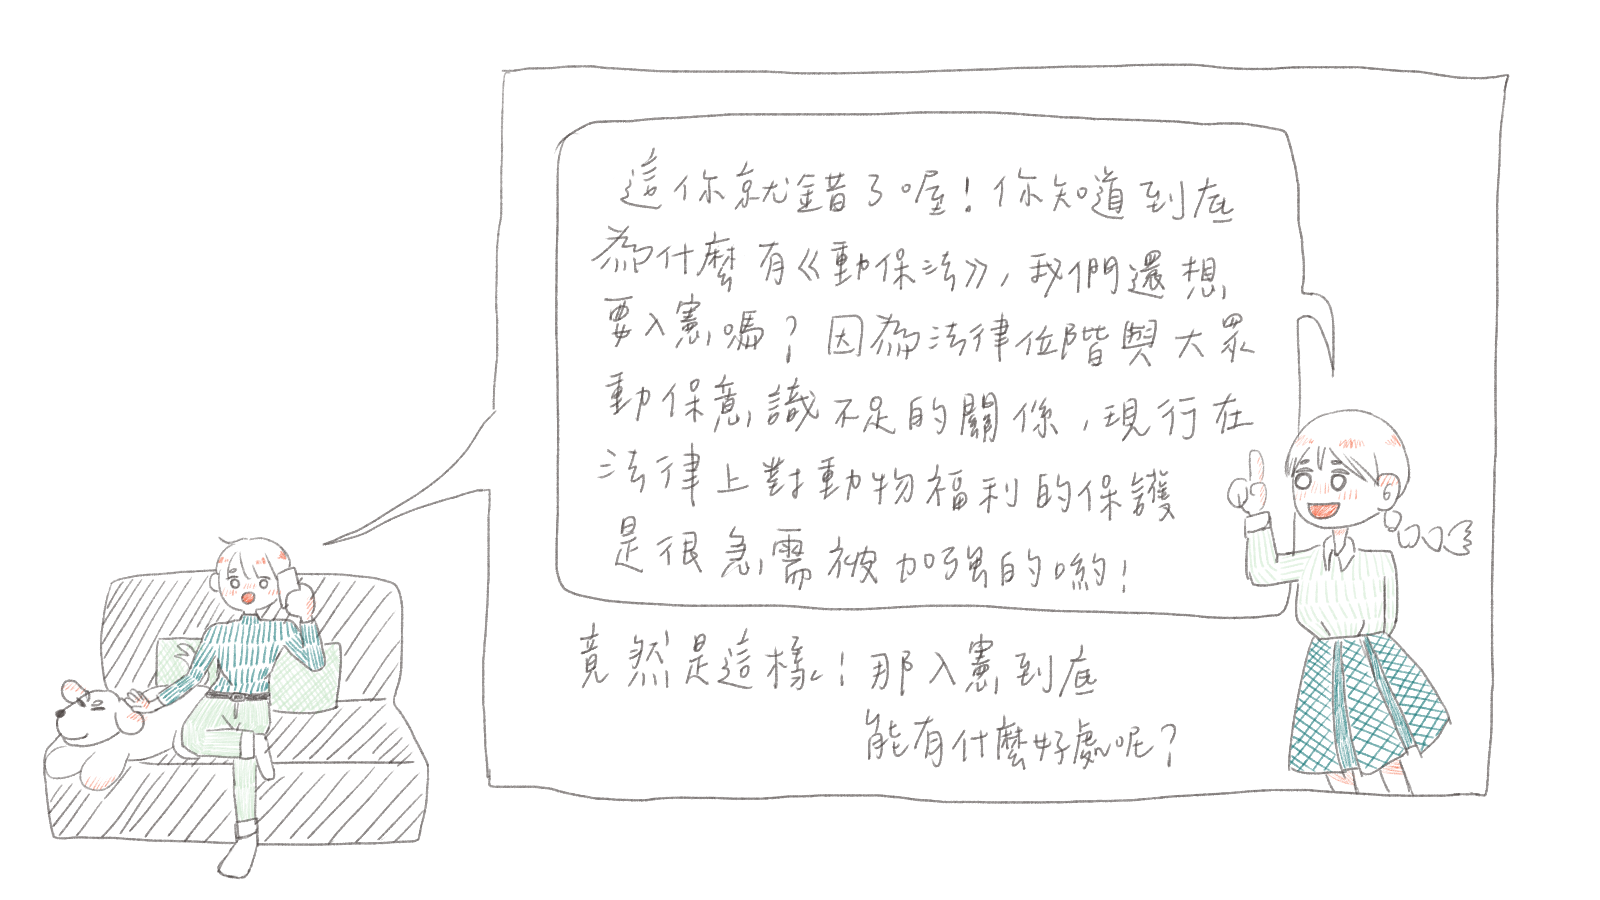 這你就錯了喔！你知道到底
為什麼有《動保法》，我們還想
要入憲嗎？因為法律位階與大眾
動保意識不足的關係，現行在
法律上對動物福利的保護
是很急需被加強的喲！
竟然是這樣！那入憲到底
能有什麼好處呢？